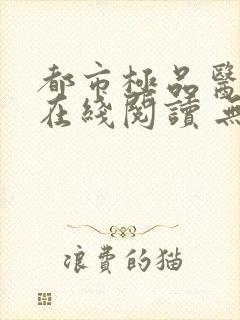 都市极品醫
在綫閱讀 無
浪費的猫